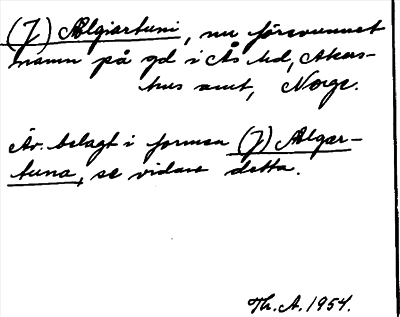 (J) Ælgiartuni, nu försvunnet
namn på gd i Ås hd, Akers-
hus amt, Norge.
Äv. belagt i formen (J) Ælgar-
tuna, se vidare detta.
Th. A. 1954.